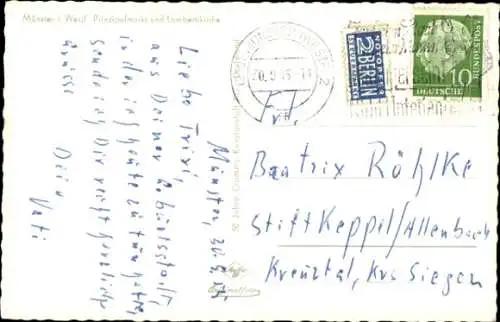 Münster i. Westf. Prinzipalmarkt und Lambertikirche
Münster, 20.9.55
Liebe Trixi,
aus Deiner Geburtsstadt,
in der ich heute zu tun hatte,
sende ich Dir recht herzliche
Grüsse
Dein
Vati
20.9.55
2
NOTOPFER
2 BERLIN
STEUERMARKE
DEUTSCHE
BUNDESPOST
10
Frl.
Beatrix Röhlke
Stift Keppel/Allenbach
Kreuztal, Krs Siegen